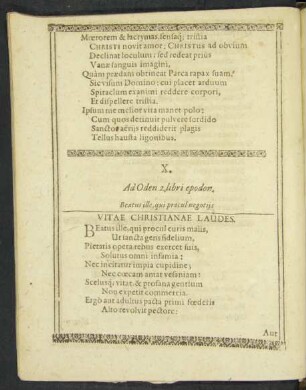 Mœrorem & lacrymas, sensaq; tristia
CHRISTI novit amor: CHRISTUS ad obvium
Declinat loculum: sed redeat prius
Vanæ sanguis imagini,
Quàm prædam obtineat Parca rapax suam,
Sic visum Domino; cui placet arduum
Spiraclum exanimi reddere corpori,
Et dispellere tristia.
Ipsum nunc melior vita manet polo:
Cum quos detinuit pulvere sordido
Sanctos aëriis reddiderit plagis
Tellus hausta ligonibus.
X.
Ad Oden 2. libri epodon.
Beatus ille, qui procul negotijs
VITAE CHRISTIANAE LAUDES.
BEatus ille, qui procul curis malis,
Ut sancta gens fidelium,
Pietatis opera rebus exercet suis,
Solutus omni infamia:
Nec incitatur impia cupidine;
Nec cœcam amat vesaniam:
Scelusq; vitat, & profana gentium
Non expetit commercia.
Ergò aut adultus pacta primi fœderis
Alto revolvit pectore:
Aut